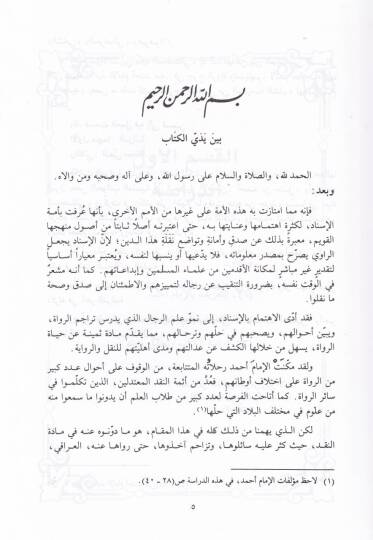 بسم الله الرحمن الرحيم
بين يَدَيّ الكتاب
الحمد لله، والصلاة والسلام على رسول الله، وعلى آله وصحبه ومن والاه.
وبعد:
فإنه مما امتازت به هذه الأمة على غيرها من الأمم الأخرى، بأنها عُرفت بأمة
الإسناد، لكثرة اهتمامها وعنايتها به، حتى اعتبرته أصلًا ثابتاً من أصول منهجها
القويم، معبرةً بذلك عن صدقِ وأمانةِ وتواضعِ نَقَلَةِ هذا الدين؛ لإنّ الإسناد يجعل
الراوي يصرّح بمصدر معلوماته، فلا يدّعيها أو ينسبها لنفسه، ويُعتبر معياراً أساسياً
لتقدير غير مباشر لمكانة الأقدمين من علماء المسلمين وإبداعاتهم. كما أنه مشعرٌ
في الوقت نفسه، بضرورة التنقيب عن رجاله لتمييزهم والاطمئنان إلى صدق وصحة
ما نقلوا.
فقد أدّى الاهتمام بالإسناد، إلى نموّ علم الرجال الذي يدرس تراجم الرواة،
ويبيّن أحوالهم، ويصحبهم في حلّهم وترحالهم، مما يقدّم مادة ثمينة عن حياة
الرواة، يسهل من خلالها الكشف عن عدالتهم ومدى أهليّتهم للنقل والرواية.
ولقد مكنّت الإمامَ أحمد رحلاتُه المتتابعة، من الوقوف على أحوال عدد كبير
من الرواة على اختلاف أوطانهم، فعُدَّ من أئمة النقد المعتدلين، الذين تكلّموا في
سائر الرواة. كما أتاحت الفرصة لعدد كبير من طلاب العلم أن يدونوا ما سمعوا منه
من علوم في مختلف البلاد التي حلّها(١).
لكن الذي يهمنا من ذلك كله في هذا المقام، هو ما دوّنوه عنه في مادة
النقد، حيث كثر عليه سائلوها، وتزاحم آخذوها، حتى رواها عنه، العراقي،
(١) لاحظ مؤلفات الإمام أحمد، في هذه الدراسة ص(٢٨ - ٤٠).
٥